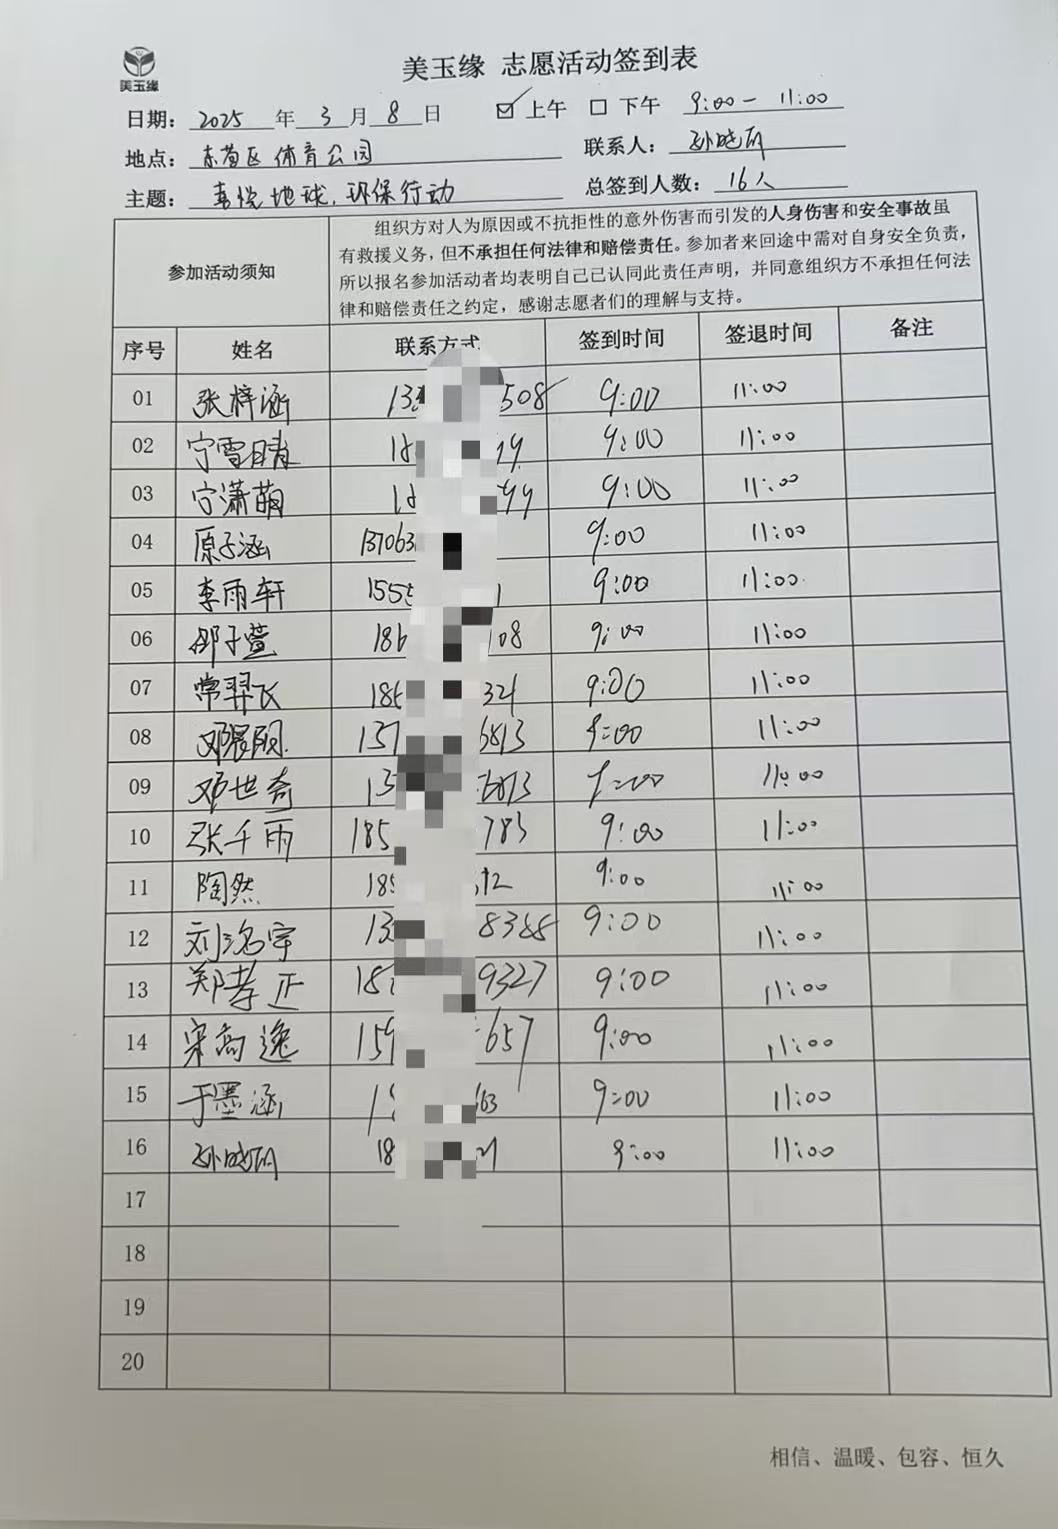 美玉缘
美玉缘 志愿活动签到表
日期: 2025 年 3 月 8 日 ☑ 上午 □ 下午 9:00 — 11:00
地点: 东营区体育公园 联系人:
主题: 喜悦地球,环保行动 总签到人数: 16人
参加活动须知
组织方对人为原因或不抗拒性的意外伤害而引发的人身伤害和安全事故虽
有救援义务,但不承担任何法律和赔偿责任。参加者来回途中需对自身安全负责,
所以报名参加活动者均表明自己已认同此责任声明,并同意组织方不承担任何法
律和赔偿责任之约定,感谢志愿者们的理解与支持。
序号 姓名 联系方式 签到时间 签退时间 备注
01 张梓涵 13 508 9:00 11:00
02 宁雪晴 18 99 9:00 11:00
03 宁潇萌 18 99 9:00 11:00
04 原子涵 137063 9:00 11:00
05 李雨轩 1555 1 9:00 11:00
06 邵子萱 186 108 9:00 11:00
07 常羿飞 186 321 9:00 11:00
08 邓 137 6813 9:00 11:00
09 邓世奇 13 6813 9:00 11:00
10 张千雨 185 783 9:00 11:00
11 陶然 185 12 9:00 11:00
12 刘洺宇 13 8388 9:00 11:00
13 郑孝正 187 9327 9:00 11:00
14 宋高逸 159 657 9:00 11:00
15 于墨涵 1 63 9:00 11:00
16 18 21 9:00 11:00
17
18
19
20
相信、温暖、包容、恒久